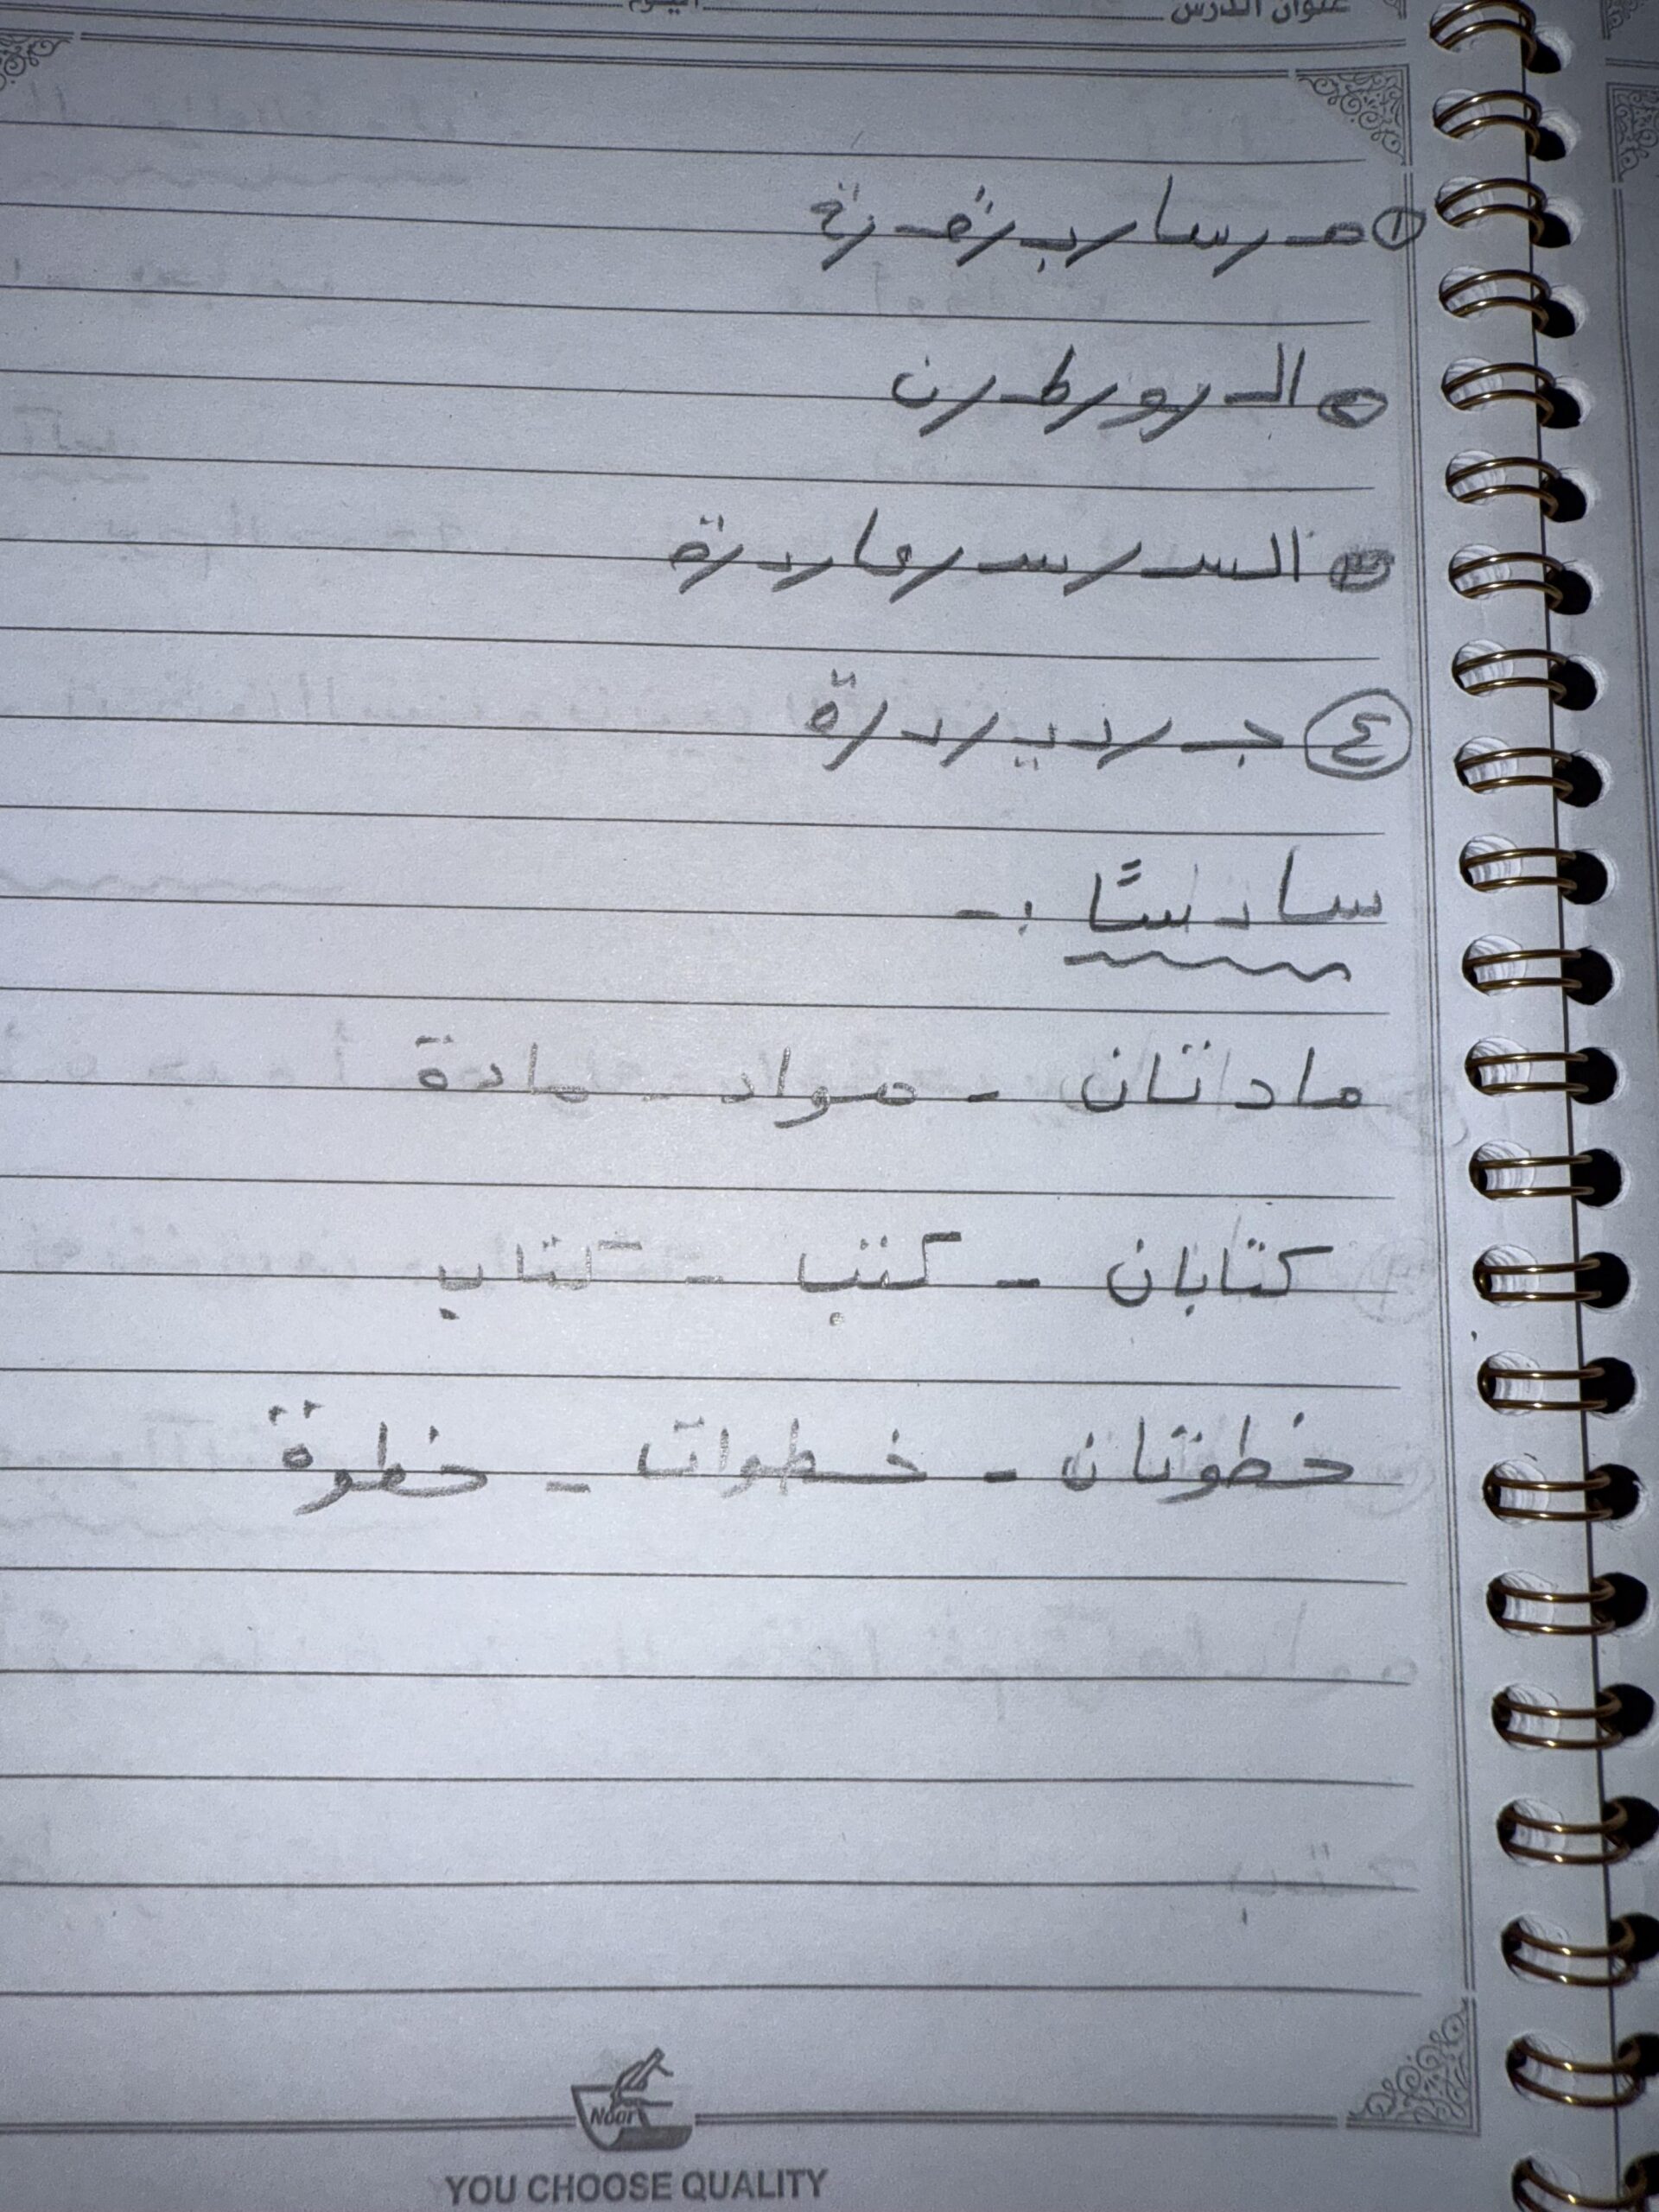 عنوان الدرس اليوم
① مـ / سا / بـ / قـ / ة
② الـ / و / طـ / ن
③ السـ / سـ / عا / د / ة
④ جـ / د / يـ / د / ة
سادسًا :-
مادتان - مواد - مادة
كتابان - كتب - كتاب
خطوتان - خطوات - خطوة
Noor
YOU CHOOSE QUALITY